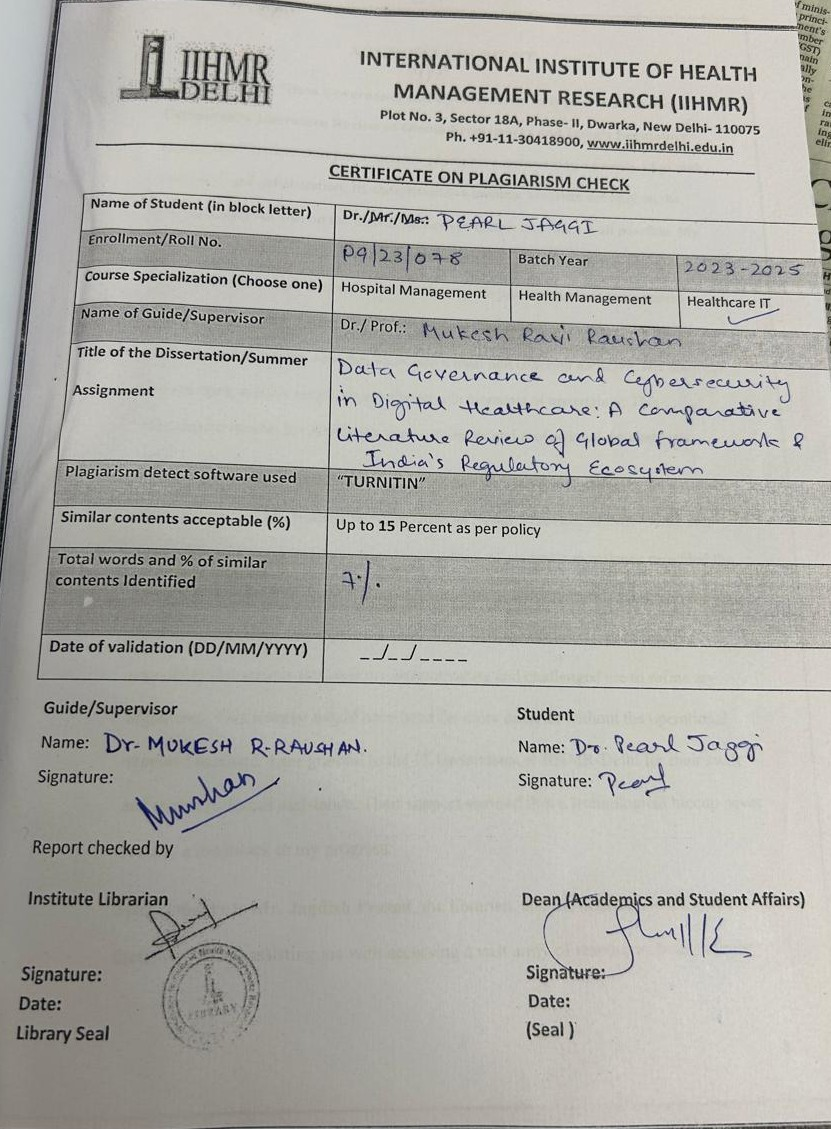 IIHMR
DELHI
INTERNATIONAL INSTITUTE OF HEALTH
MANAGEMENT RESEARCH (IIHMR)
Plot No. 3, Sector 18A, Phase- II, Dwarka, New Delhi- 110075
Ph. +91-11-30418900, www.iihmrdelhi.edu.in
CERTIFICATE ON PLAGIARISM CHECK
Name of Student (in block letter) Dr./Mr./Ms.: PEARL JAGGI
Enrollment/Roll No. PG/23/078 Batch Year 2023-2025
Course Specialization (Choose one) Hospital Management Health Management Healthcare IT
Name of Guide/Supervisor Dr./ Prof.: Mukesh Ravi Raushan
Title of the Dissertation/Summer
Assignment
Data Governance and Cybersecurity
in Digital Healthcare: A Comparative
Literature Review of Global framework &
India's Regulatory Ecosystem
Plagiarism detect software used "TURNITIN"
Similar contents acceptable (%) Up to 15 Percent as per policy
Total words and % of similar
contents Identified
7%.
Date of validation (DD/MM/YYYY) _ _/_ _/_ _ _ _
Guide/Supervisor
Name: Dr- MUKESH R-RAUSHAN.
Signature:
Student
Name: Dr. Pearl Jaggi
Signature: Pearl
Report checked by
Institute Librarian
Signature:
Date:
Library Seal
LIBRARY
Dean (Academics and Student Affairs)
Signature:
Date:
(Seal )